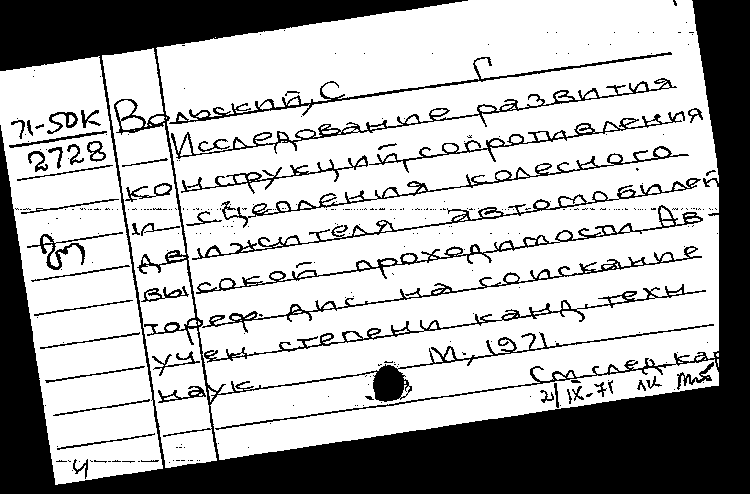 71-50К
2728
Вольский, С Г
Исследование развития
конструкций, сопротивления
и сцепления колесного
движителя автомобилей
высокой проходимости. Ав-
тореф. дис. на соискание
учен. степени канд. техн
наук. М., 1971.
См след. кар
21/IX-71 лк
ч